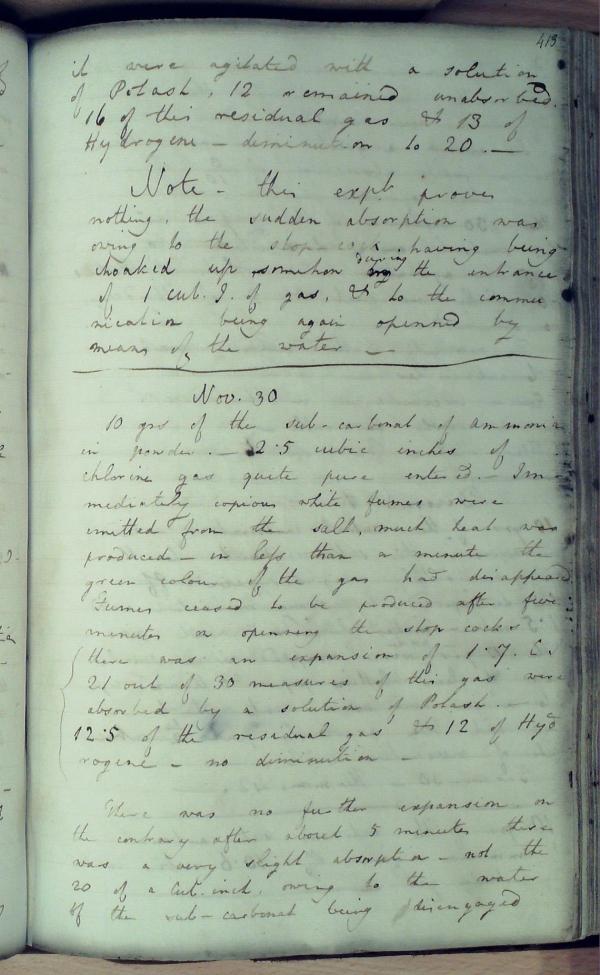 413
it were agitated with a solution
of Potash, 12 remained unabsorbed.
16 of this residual gas & 13 of
Hydrogene – diminution to 20. —
Note – this expt proves
nothing, the sudden absorption was
owing to the stop-cock having being
choaked up somehow during the entrance
of 1 cub. I. of gas, & to the commu
nication being again openned by
means of the water —
Nov. 30
10 grs of the sub-carbonat of ammonia
in powder. — 2·5 cubic inches of
chlorine gas quite pure entered. – Im
mediately copious white fumes were
emitted from the salt, much heat was
produced – in less than a minute the
green colour of the gas had disappeared
Fumes ceased to be produced after five
minutes on openning the stop cocks
there was an expansion of 1·7. C.
21 out of 30 measures of this gas were
absorbed by a solution of Potash. –
12·5 of the residual gas & 12 of Hyd
rogene – no diminution –
There was no further expansion on
the contrary after about 5 minutes there
was a very slight absorption – not the
20 of a cub. inch, owing to the water
of the sub-carbonat being disengaged